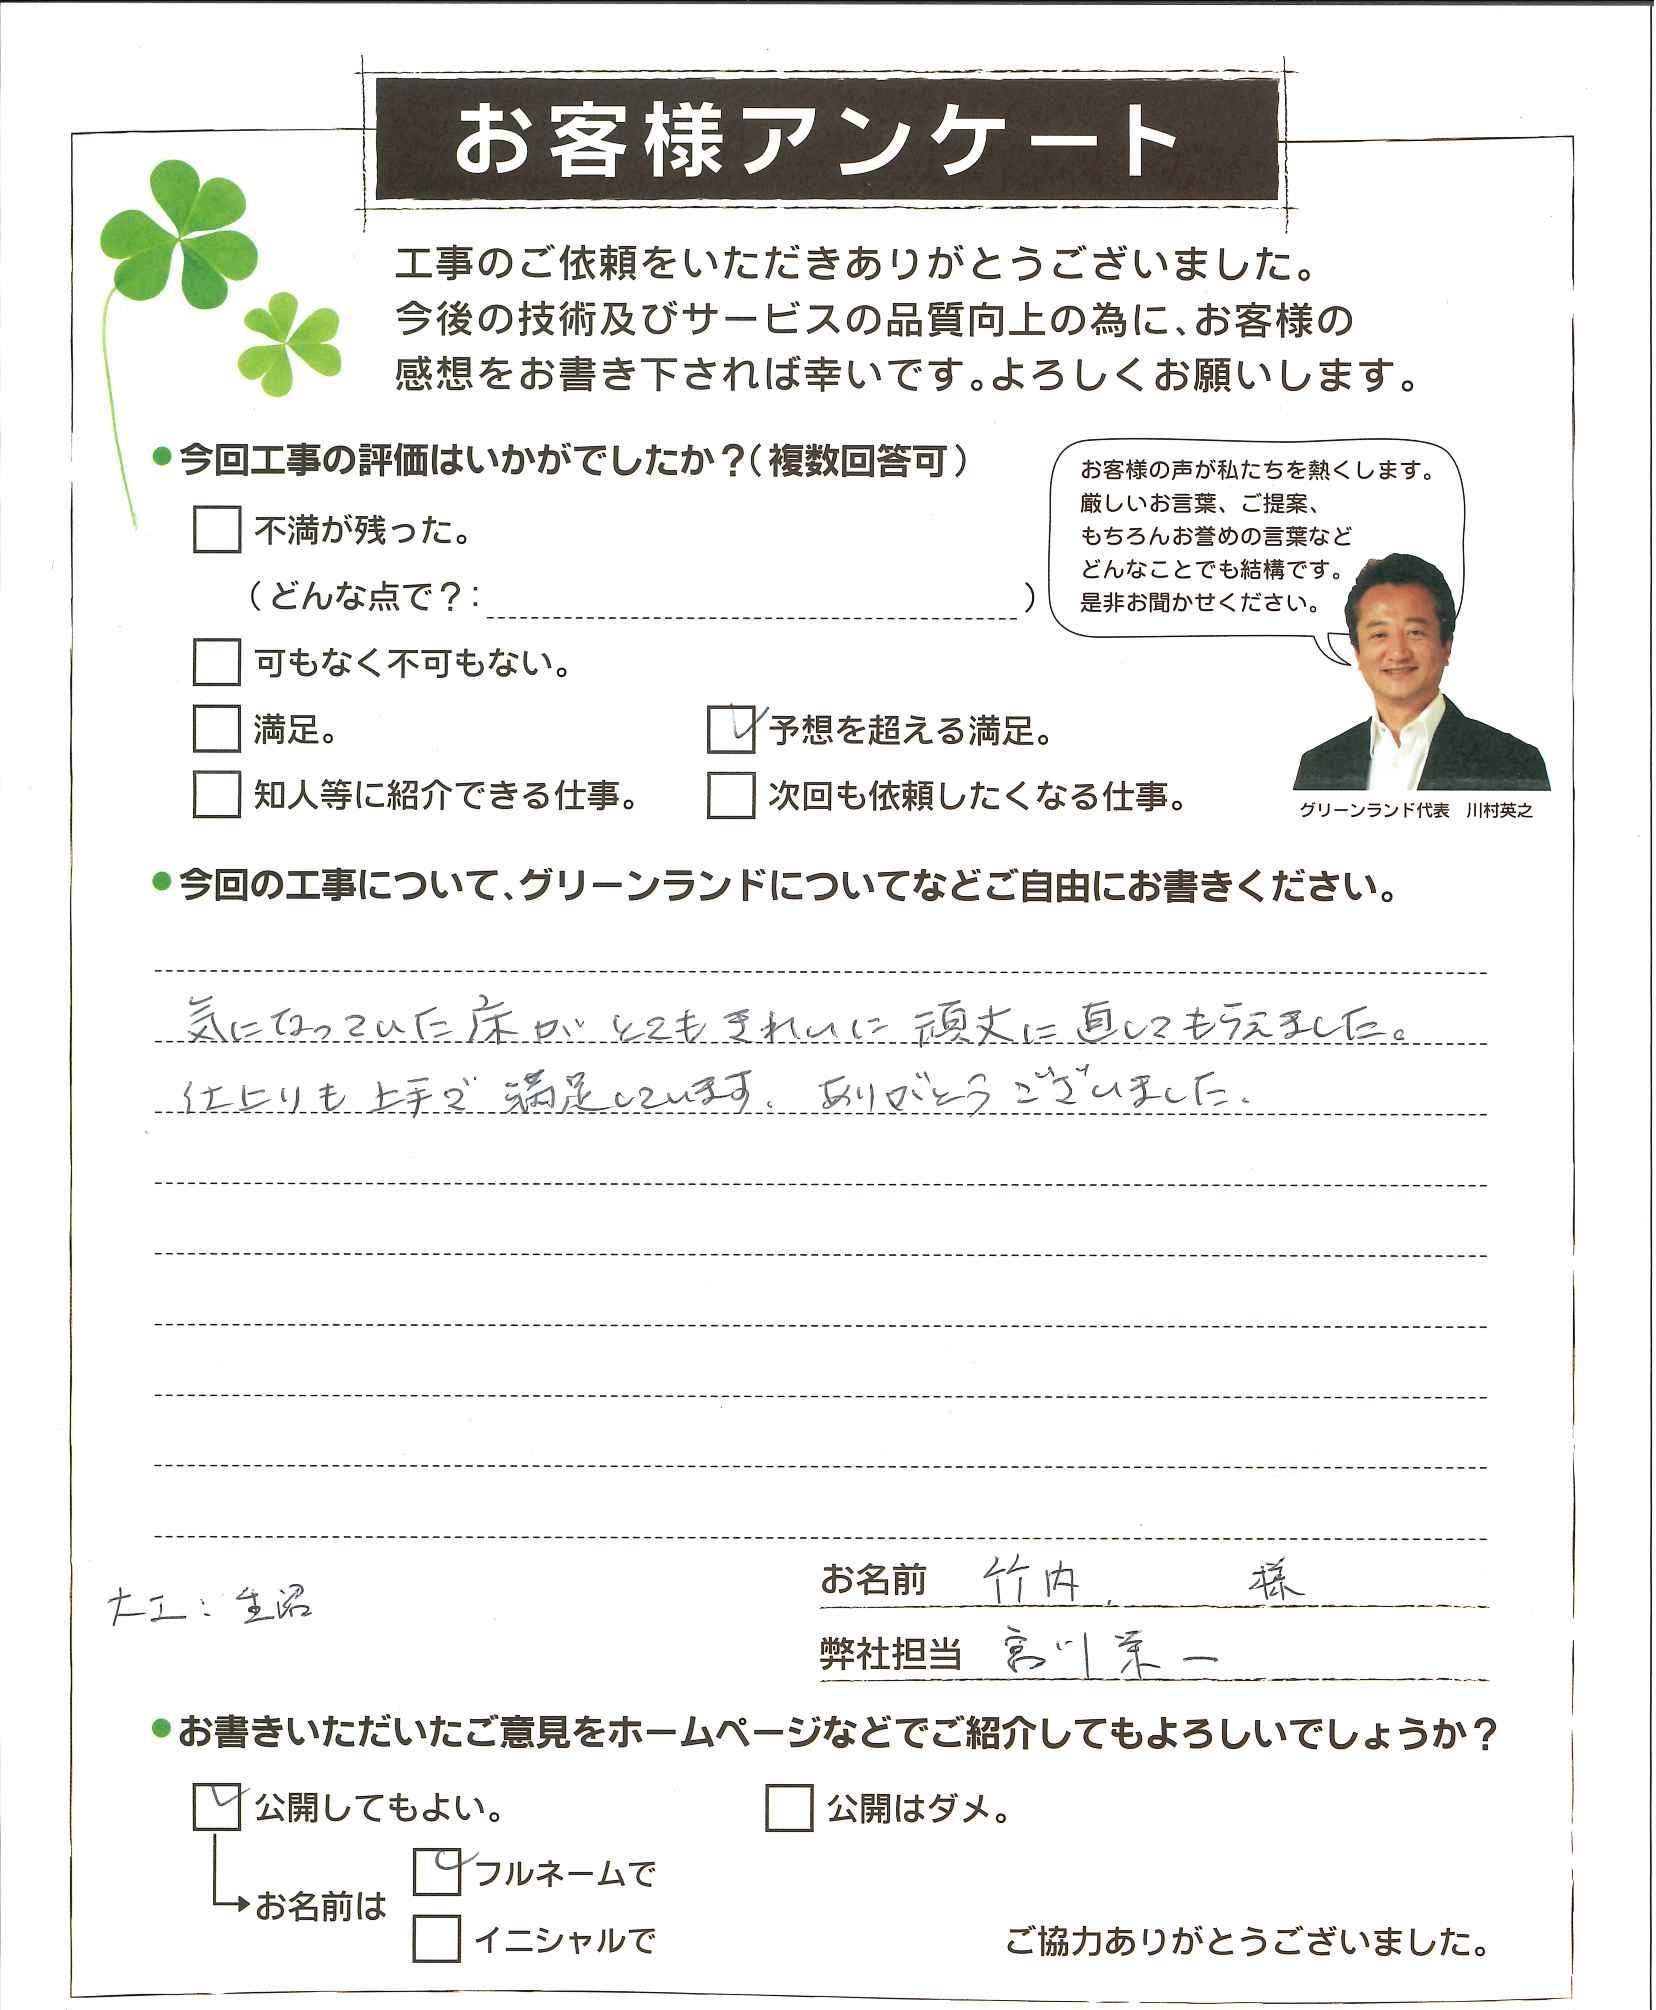 お客様アンケート
工事のご依頼をいただきありがとうございました。
今後の技術及びサービスの品質向上の為に、お客様の
感想をお書き下されば幸いです。よろしくお願いします。
●今回工事の評価はいかがでしたか？（複数回答可）
不満が残った。
（どんな点で？：　）
可もなく不可もない。
満足。
予想を超える満足。
知人等に紹介できる仕事。
次回も依頼したくなる仕事。
お客様の声が私たちを熱くします。
厳しいお言葉、ご提案、
もちろんお誉めの言葉など
どんなことでも結構です。
是非お聞かせください。
グリーンランド代表　川村英之
●今回の工事について、グリーンランドについてなどご自由にお書きください。
気になっていた床がとてもきれいに頑丈に直してもらえました。
仕上りも上手で満足しています。ありがとうございました。
お名前　竹内　様
大工：生沼
弊社担当　宮川栄一
●お書きいただいたご意見をホームページなどでご紹介してもよろしいでしょうか？
公開してもよい。
公開はダメ。
お名前は
フルネームで
イニシャルで
ご協力ありがとうございました。